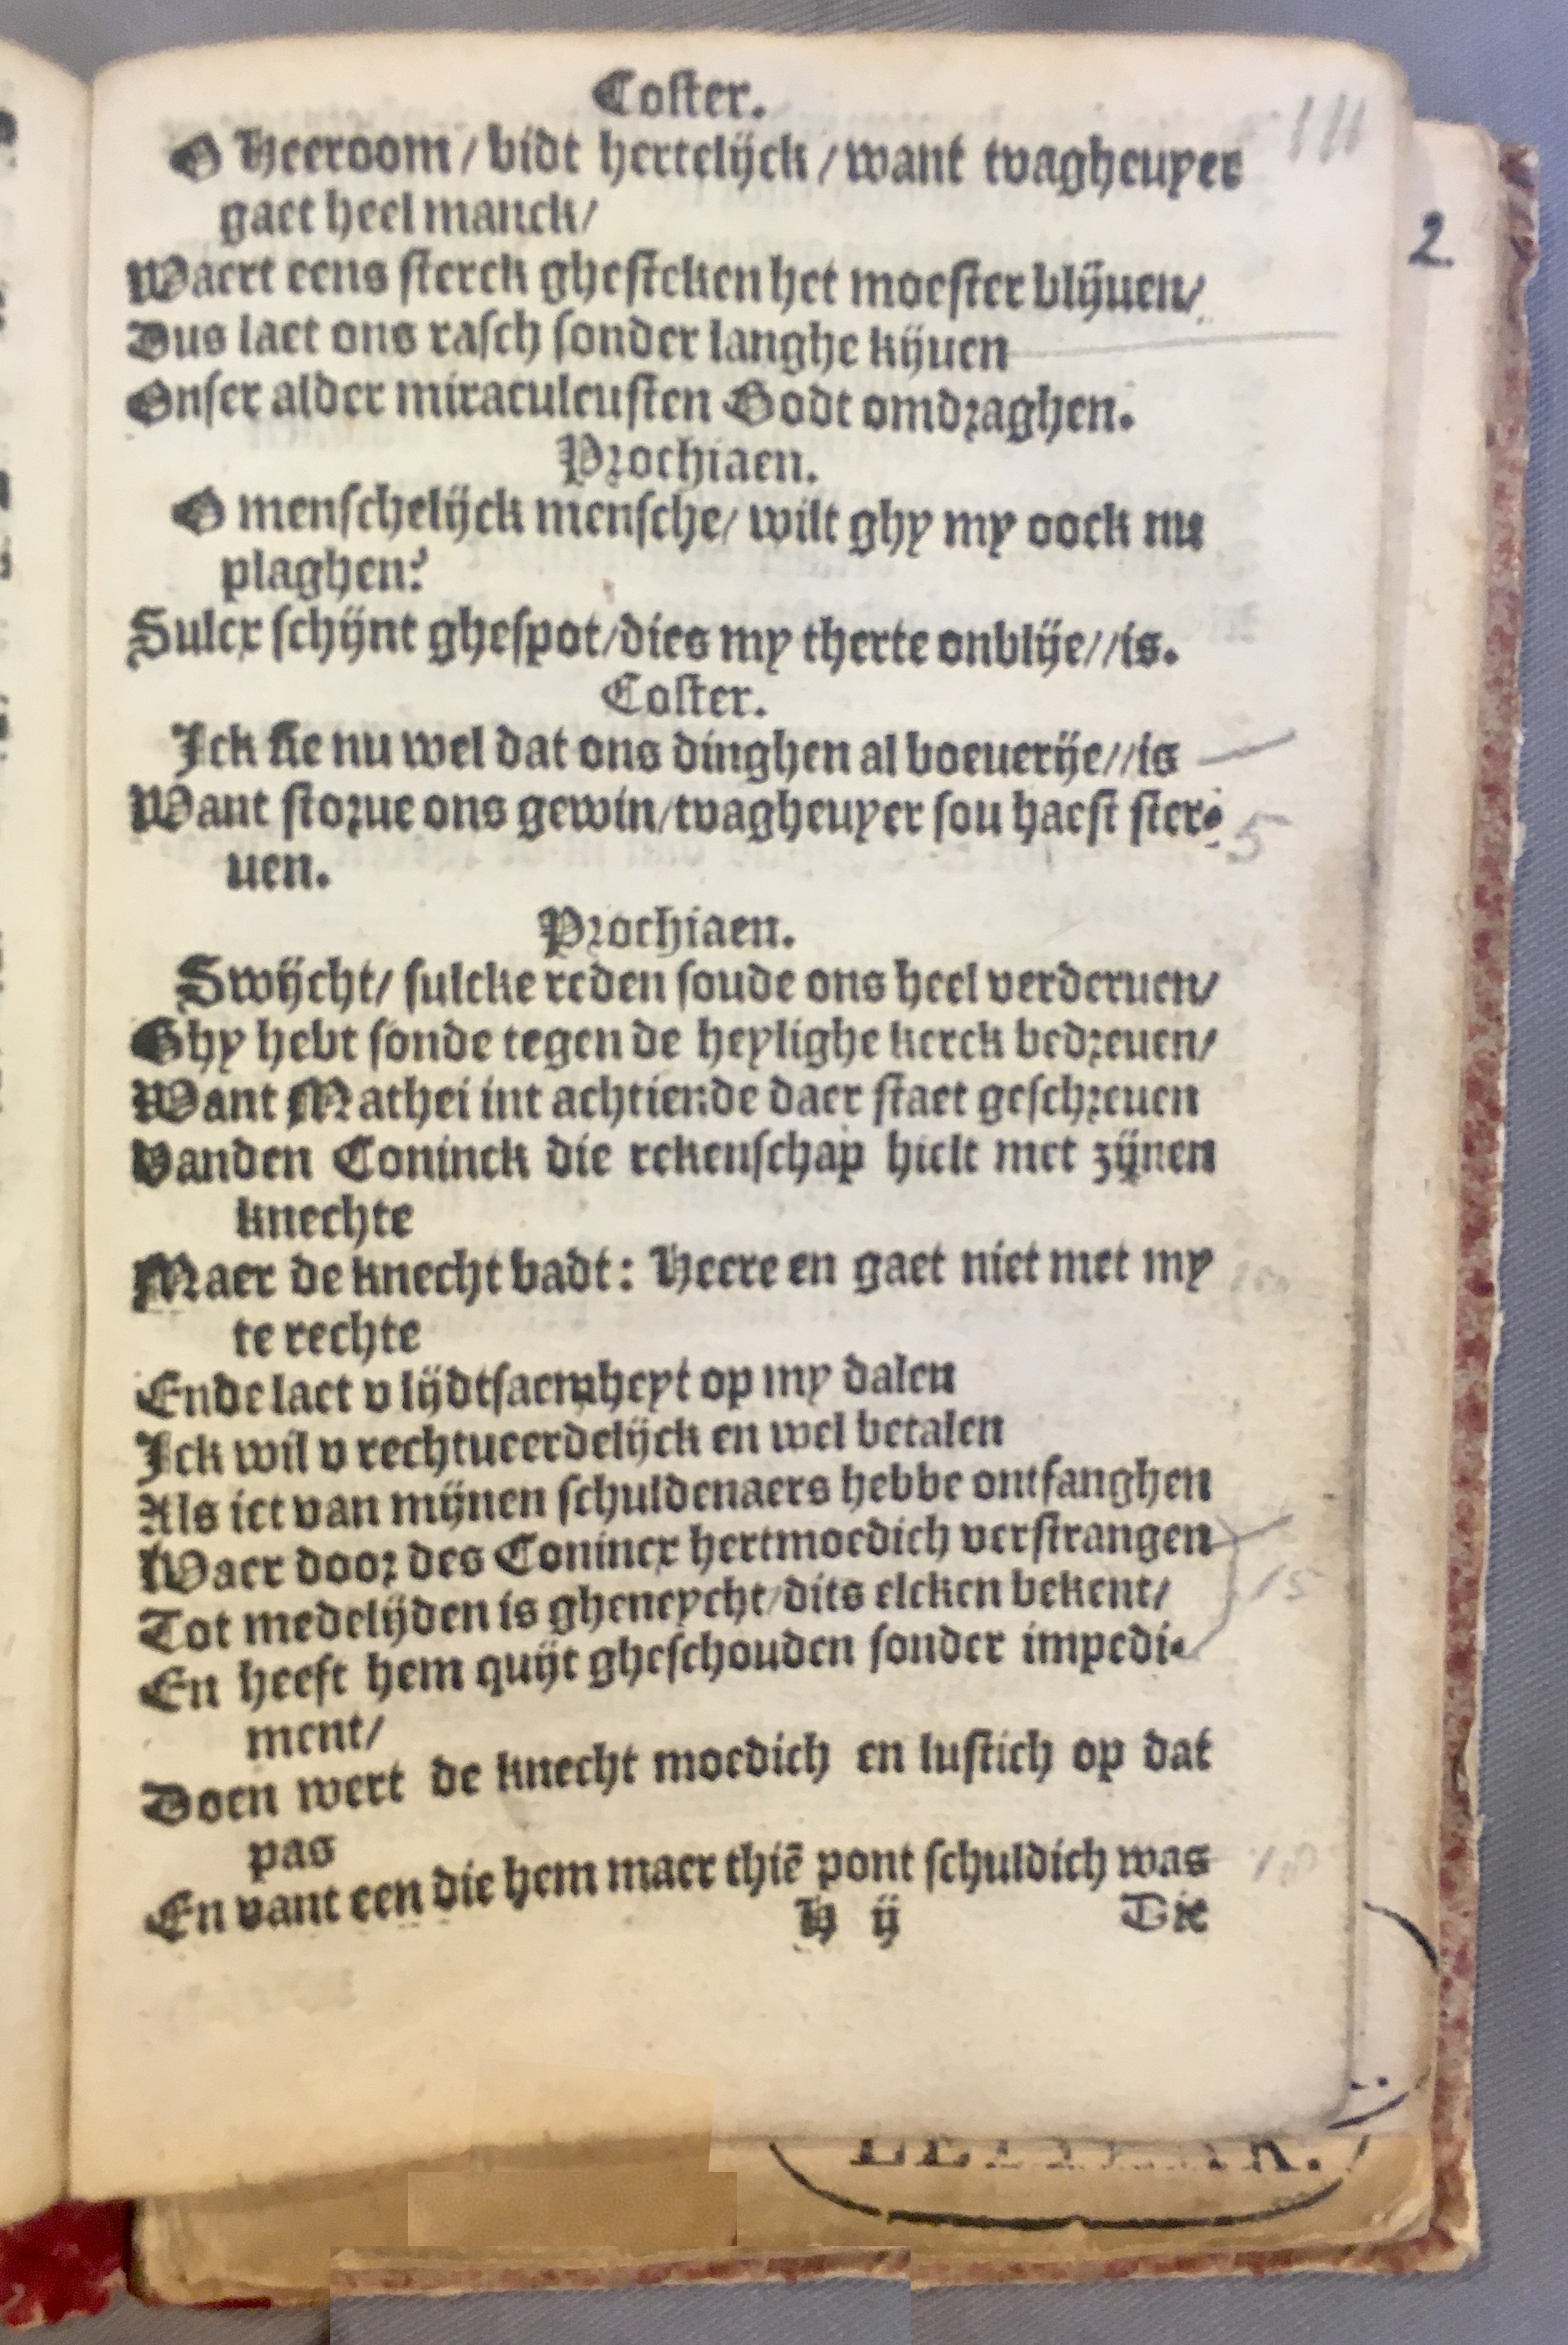 Coster.
111
O Heeroom / bidt hertelijck / want tvagheuyer
gaet heel manck/
2
Waert eens sterck ghesteken het moester blijuen/
Dus laet ons rasch sonder langhe kijuen
Onser alder miraculeusten Godt omdraghen.
Prochiaen.
O menschelijck mensche/ wilt ghy my oock nu
plaghen?
Sulcx schijnt ghespot/dies my therte onblije//is.
Coster.
Ick sie nu wel dat ons dinghen al boeuerije//is
Want storue ons gewin/tvagheuyer sou haest ster-
5
uen.
Prochiaen.
Swijcht/ sulcke reden soude ons heel verderuen/
Ghy hebt sonde tegen de heylighe kerck bedreuen/
Want Mathei int achtiende daer staet geschreuen
Vanden Coninck die rekenschap hielt met zijnen
knechte
Maer de knecht badt: Heere en gaet niet met my
te rechte
Ende laet v lijdtsaemheyt op my dalen
Ick wil v rechtueerdelijck en wel betalen
Als ict van mijnen schuldenaers hebbe ontfanghen
Waer door des Conincx hertmoedich verstrangen
Tot medelijden is gheneycht/dits elcken bekent/
15
En heeft hem quijt gheschouden sonder impedi-
ment/
Doen wert de knecht moedich en lustich op dat
pas
En vant een die hem maer thiē pont schuldich was
H ij Die